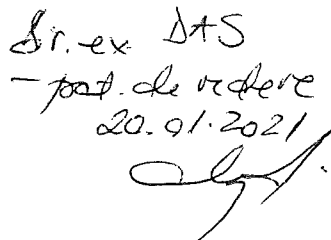 Dir. ex DAS
- pct. de vedere
20.01.2021